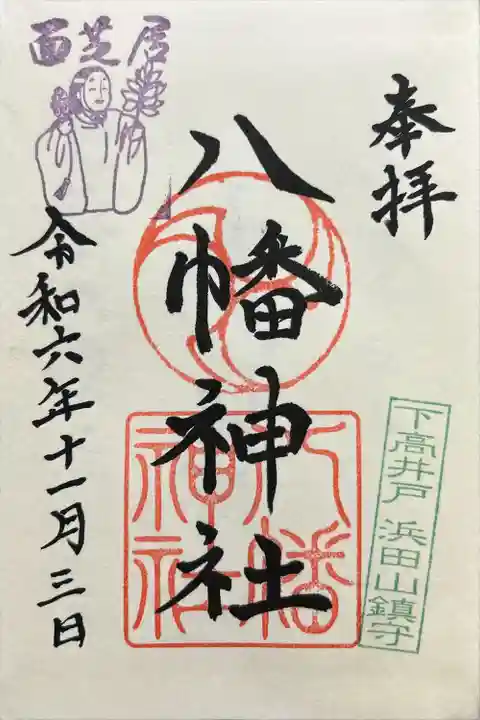 奉拝
八幡神社
八幡
神社
下高井戸 浜田山鎮守
面芝居
令和六年十一月三日